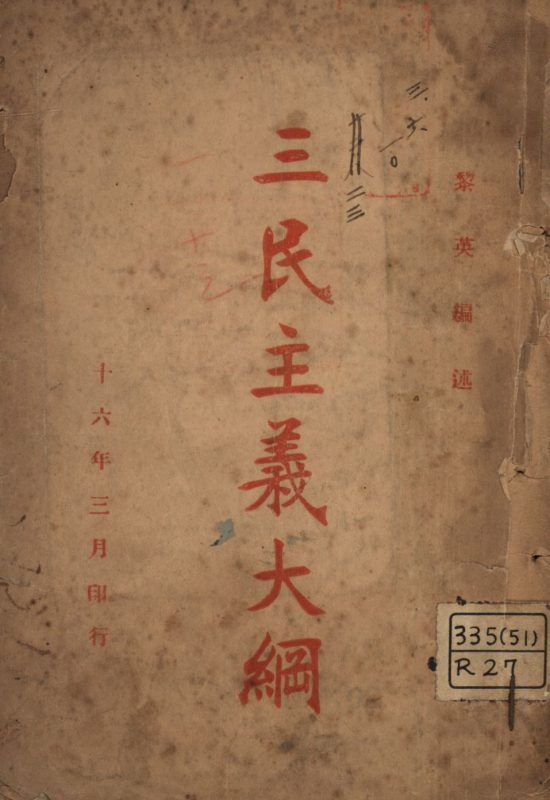 黎英編述
三民主義大綱
十六年三月印行
335(51)
R27